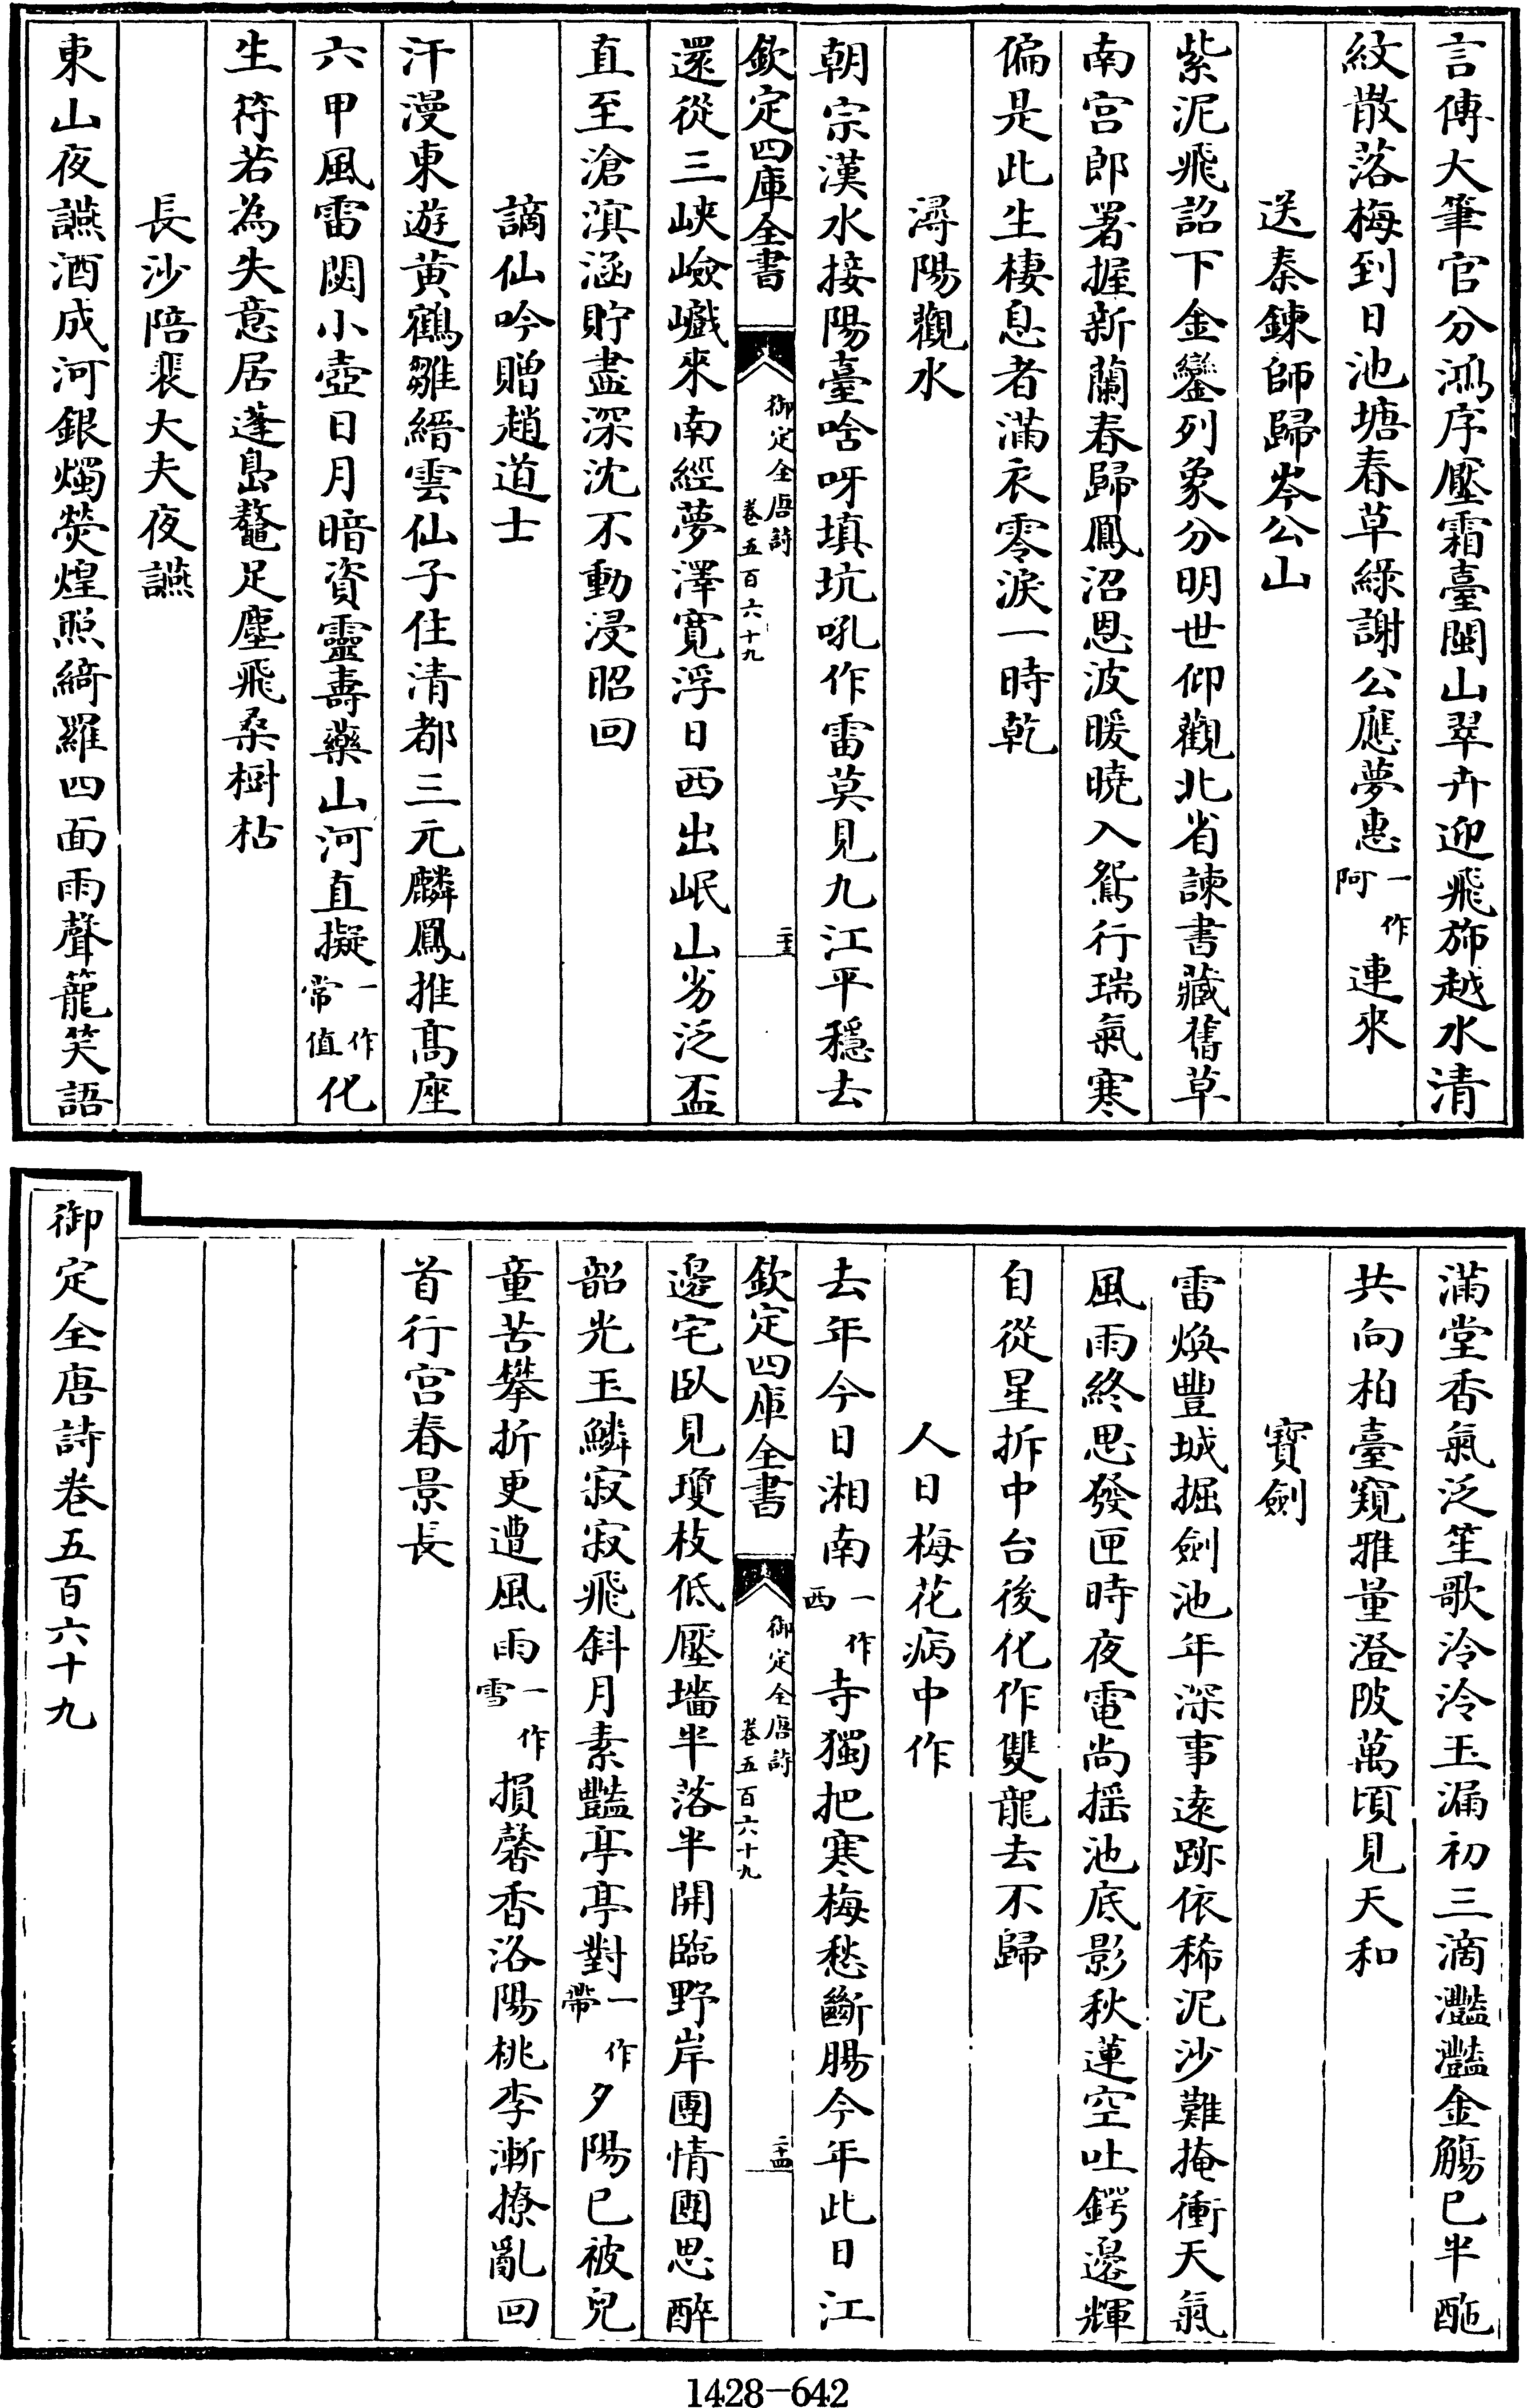 言傳大筆官分鴻序壓霜臺閩山翠卉迎飛斾越水清
紋散落梅到日池塘春草綠謝公應夢惠一作阿連來
送秦鍊師歸岑公山
紫泥飛詔下金鑾列象分明世仰觀北省諫書藏舊草
南宫郎署握新蘭春歸鳳沼恩波暖曉入鴛行瑞氣寒
偏是此生棲息者滿衣零淚一時乾
潯陽觀水
朝宗漢水接陽臺唅呀填坑吼作雷莫見九江平穩去
欽定四庫全書 御定全唐詩 卷五百六十九 二十三
還從三峽嶮巇來南經夢澤寬浮日西出岷山劣泛盃
直至滄溟涵貯盡深沈不動浸昭回
謫仙吟贈趙道士
汗漫東遊黄鶴雛縉雲仙子住清都三元麟鳳推高座
六甲風雷閟小壺日月暗資靈壽藥山河直擬一作常值化
生符若為失意居蓬島鼇足塵飛桑樹枯
長沙陪裴大夫夜讌
東山夜讌酒成河銀燭熒煌照綺羅四面雨聲籠笑語
滿堂香氣泛笙歌泠泠玉漏初三滴灧灧金觴已半酡
共向柏臺窺雅量澄陂萬頃見天和
寶劍
雷煥豐城掘劍池年深事遠跡依稀泥沙難掩衝天氣
風雨終思發匣時夜電尚摇池底影秋蓮空吐鍔邊輝
自從星拆中台後化作雙龍去不歸
人日梅花病中作
去年今日湘南一作西寺獨把寒梅愁斷腸今年此日江
欽定四庫全書 御定全唐詩 卷五百六十九 二十四
邊宅臥見瓊枝低壓墻半落半開臨野岸團情團思醉
韶光玉鱗寂寂飛斜月素豔亭亭對一作帶夕陽已被兒
童苦攀折更遭風雨一作雪損馨香洛陽桃李漸撩亂回
首行宫春景長
御定全唐詩卷五百六十九
1428-642